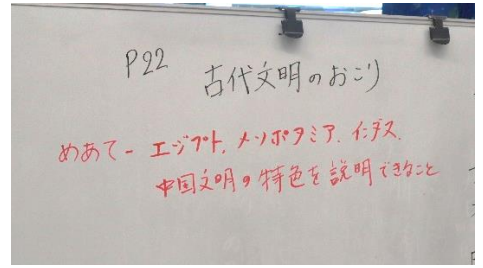 P22
古代文明のおこり
めあて－エジプト，メソポタミア．インダス．
中国文明の特色を説明できること